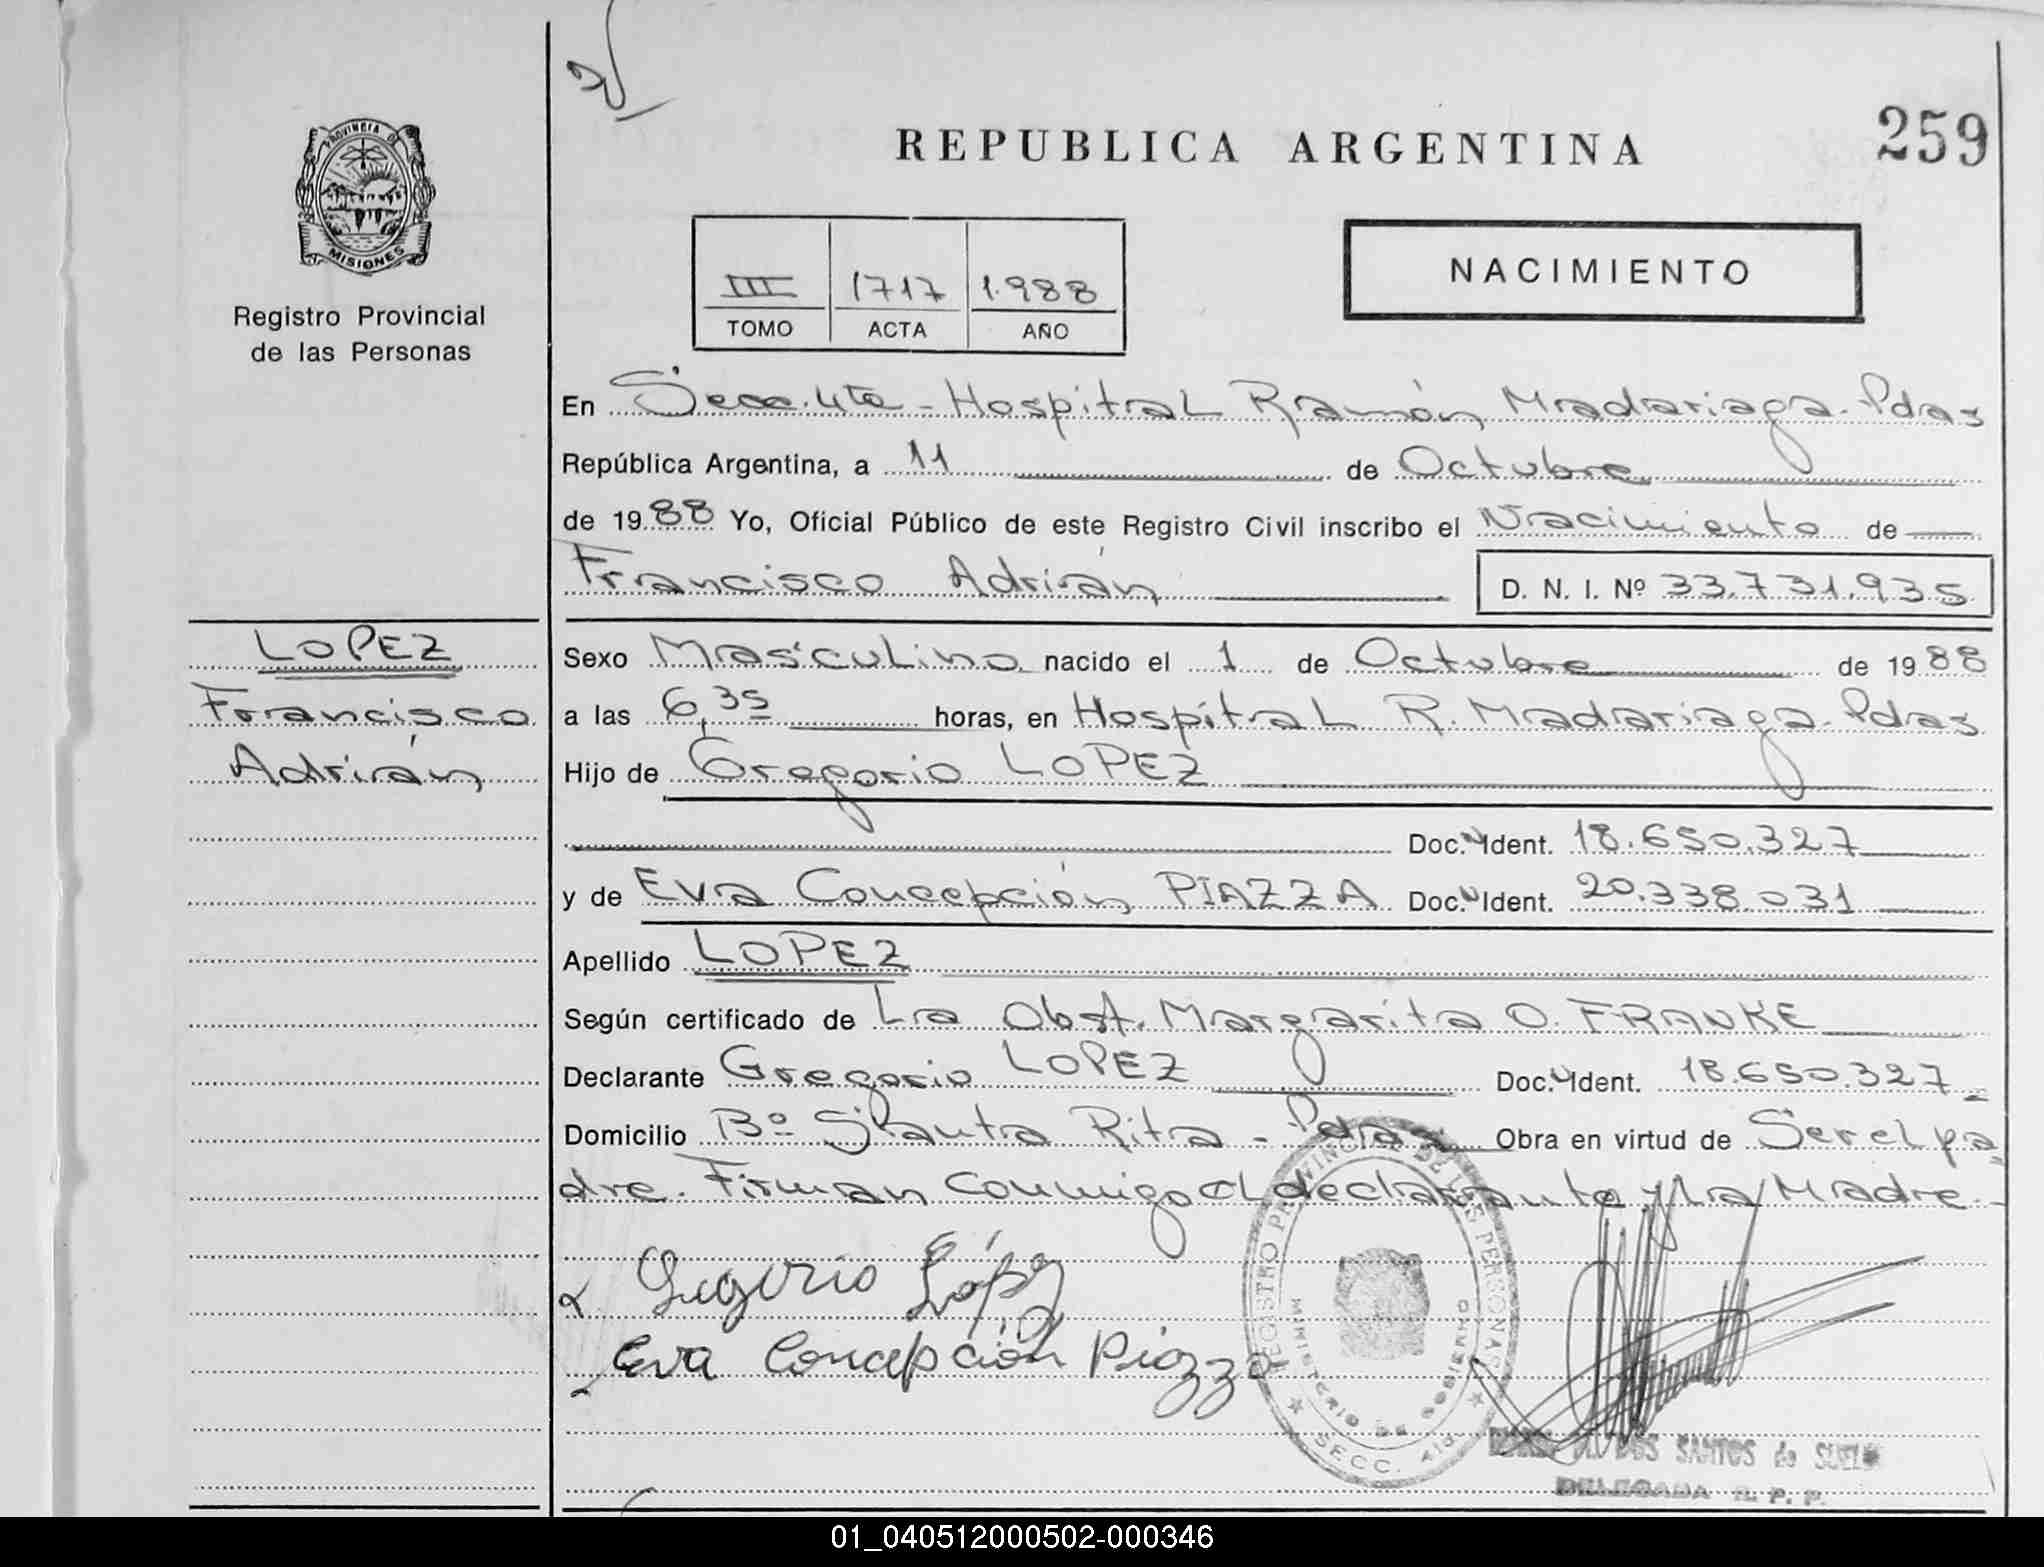 259
REPUBLICA ARGENTINA
PROVINCIA DE
MISIONES
Registro Provincial
de las Personas
NACIMIENTO
III 1717 1.988
TOMO ACTA AÑO
En Secc. 4ta - Hospital Ramón Madariaga. Pdas
República Argentina, a 11 de Octubre
de 1988 Yo, Oficial Público de este Registro Civil inscribo el Nacimiento de
Francisco Adrián
D. N. I. Nº 33.731.935
LOPEZ
Francisco
Adrián
Sexo Masculino nacido el 1 de Octubre de 1988
a las 6,35 horas, en Hospital R. Madariaga. Pdas
Hijo de Gregorio LOPEZ
Doc. Ident. 18.650.327
y de Eva Concepción PIAZZA Doc. Ident. 20.338.031
Apellido LOPEZ
Según certificado de La Obst. Margarita O. FRANKE
Declarante Gregorio LOPEZ Doc. Ident. 18.650.327
Domicilio Bº Santa Rita - Pdas Obra en virtud de Ser el pa
dre. Firman Conmigo el declarante y La Madre
Gregorio López
Eva Concepción Piazza
REGISTRO PROVINCIAL DE LAS PERSONAS
MINISTERIO DE GOBIERNO
SECC. 4ta.
DOS SANTOS de SUELO
DELEGADA R. P. P.
01_040512000502-000346